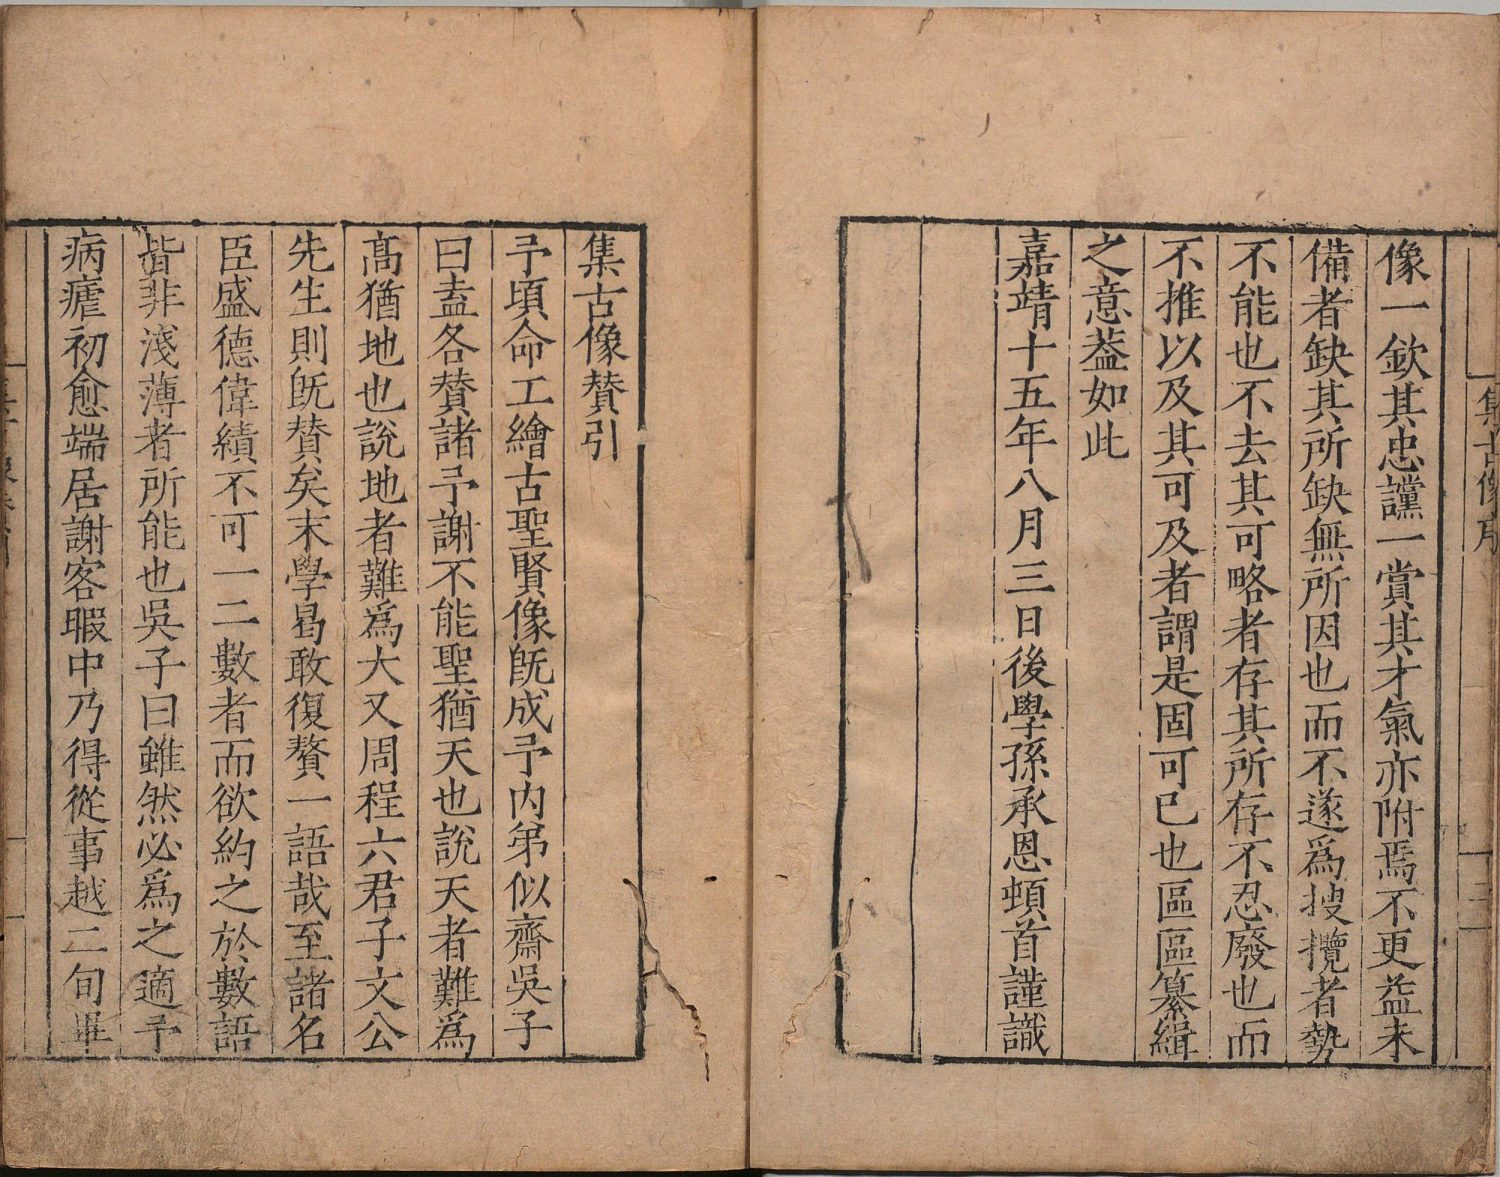 集古像序
像一欽其忠讜一賞其才氣亦附焉不更益未
備者缺其所缺無所因也而不遂爲搜攬者勢
不能也不去其可略者存其所存不忍廢也而
不推以及其可及者謂是固可已也區區纂緝
之意葢如此
嘉靖十五年八月三日後學孫承恩頓首謹識
集古像贊引
予頃命工繪古聖賢像旣成予内弟似齋吳子
曰盍各贊諸予謝不能聖猶天也說天者難爲
髙猶地也說地者難爲大又周程六君子文公
先生則旣贊矣末學曷敢復贅一語哉至諸名
臣盛德偉績不可一二數者而欲約之於數語
皆非淺薄者所能也吳子曰雖然必爲之適予
病瘧初愈端居謝客暇中乃得從事越二旬畢